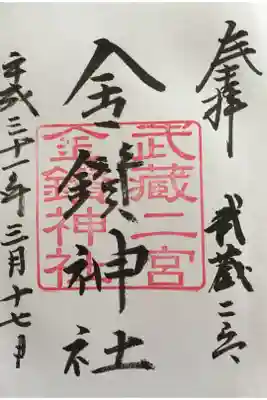 奉拝
武蔵二宮
金鑚神社
武蔵二宮
金鑚神社
平成三十一年三月十七日